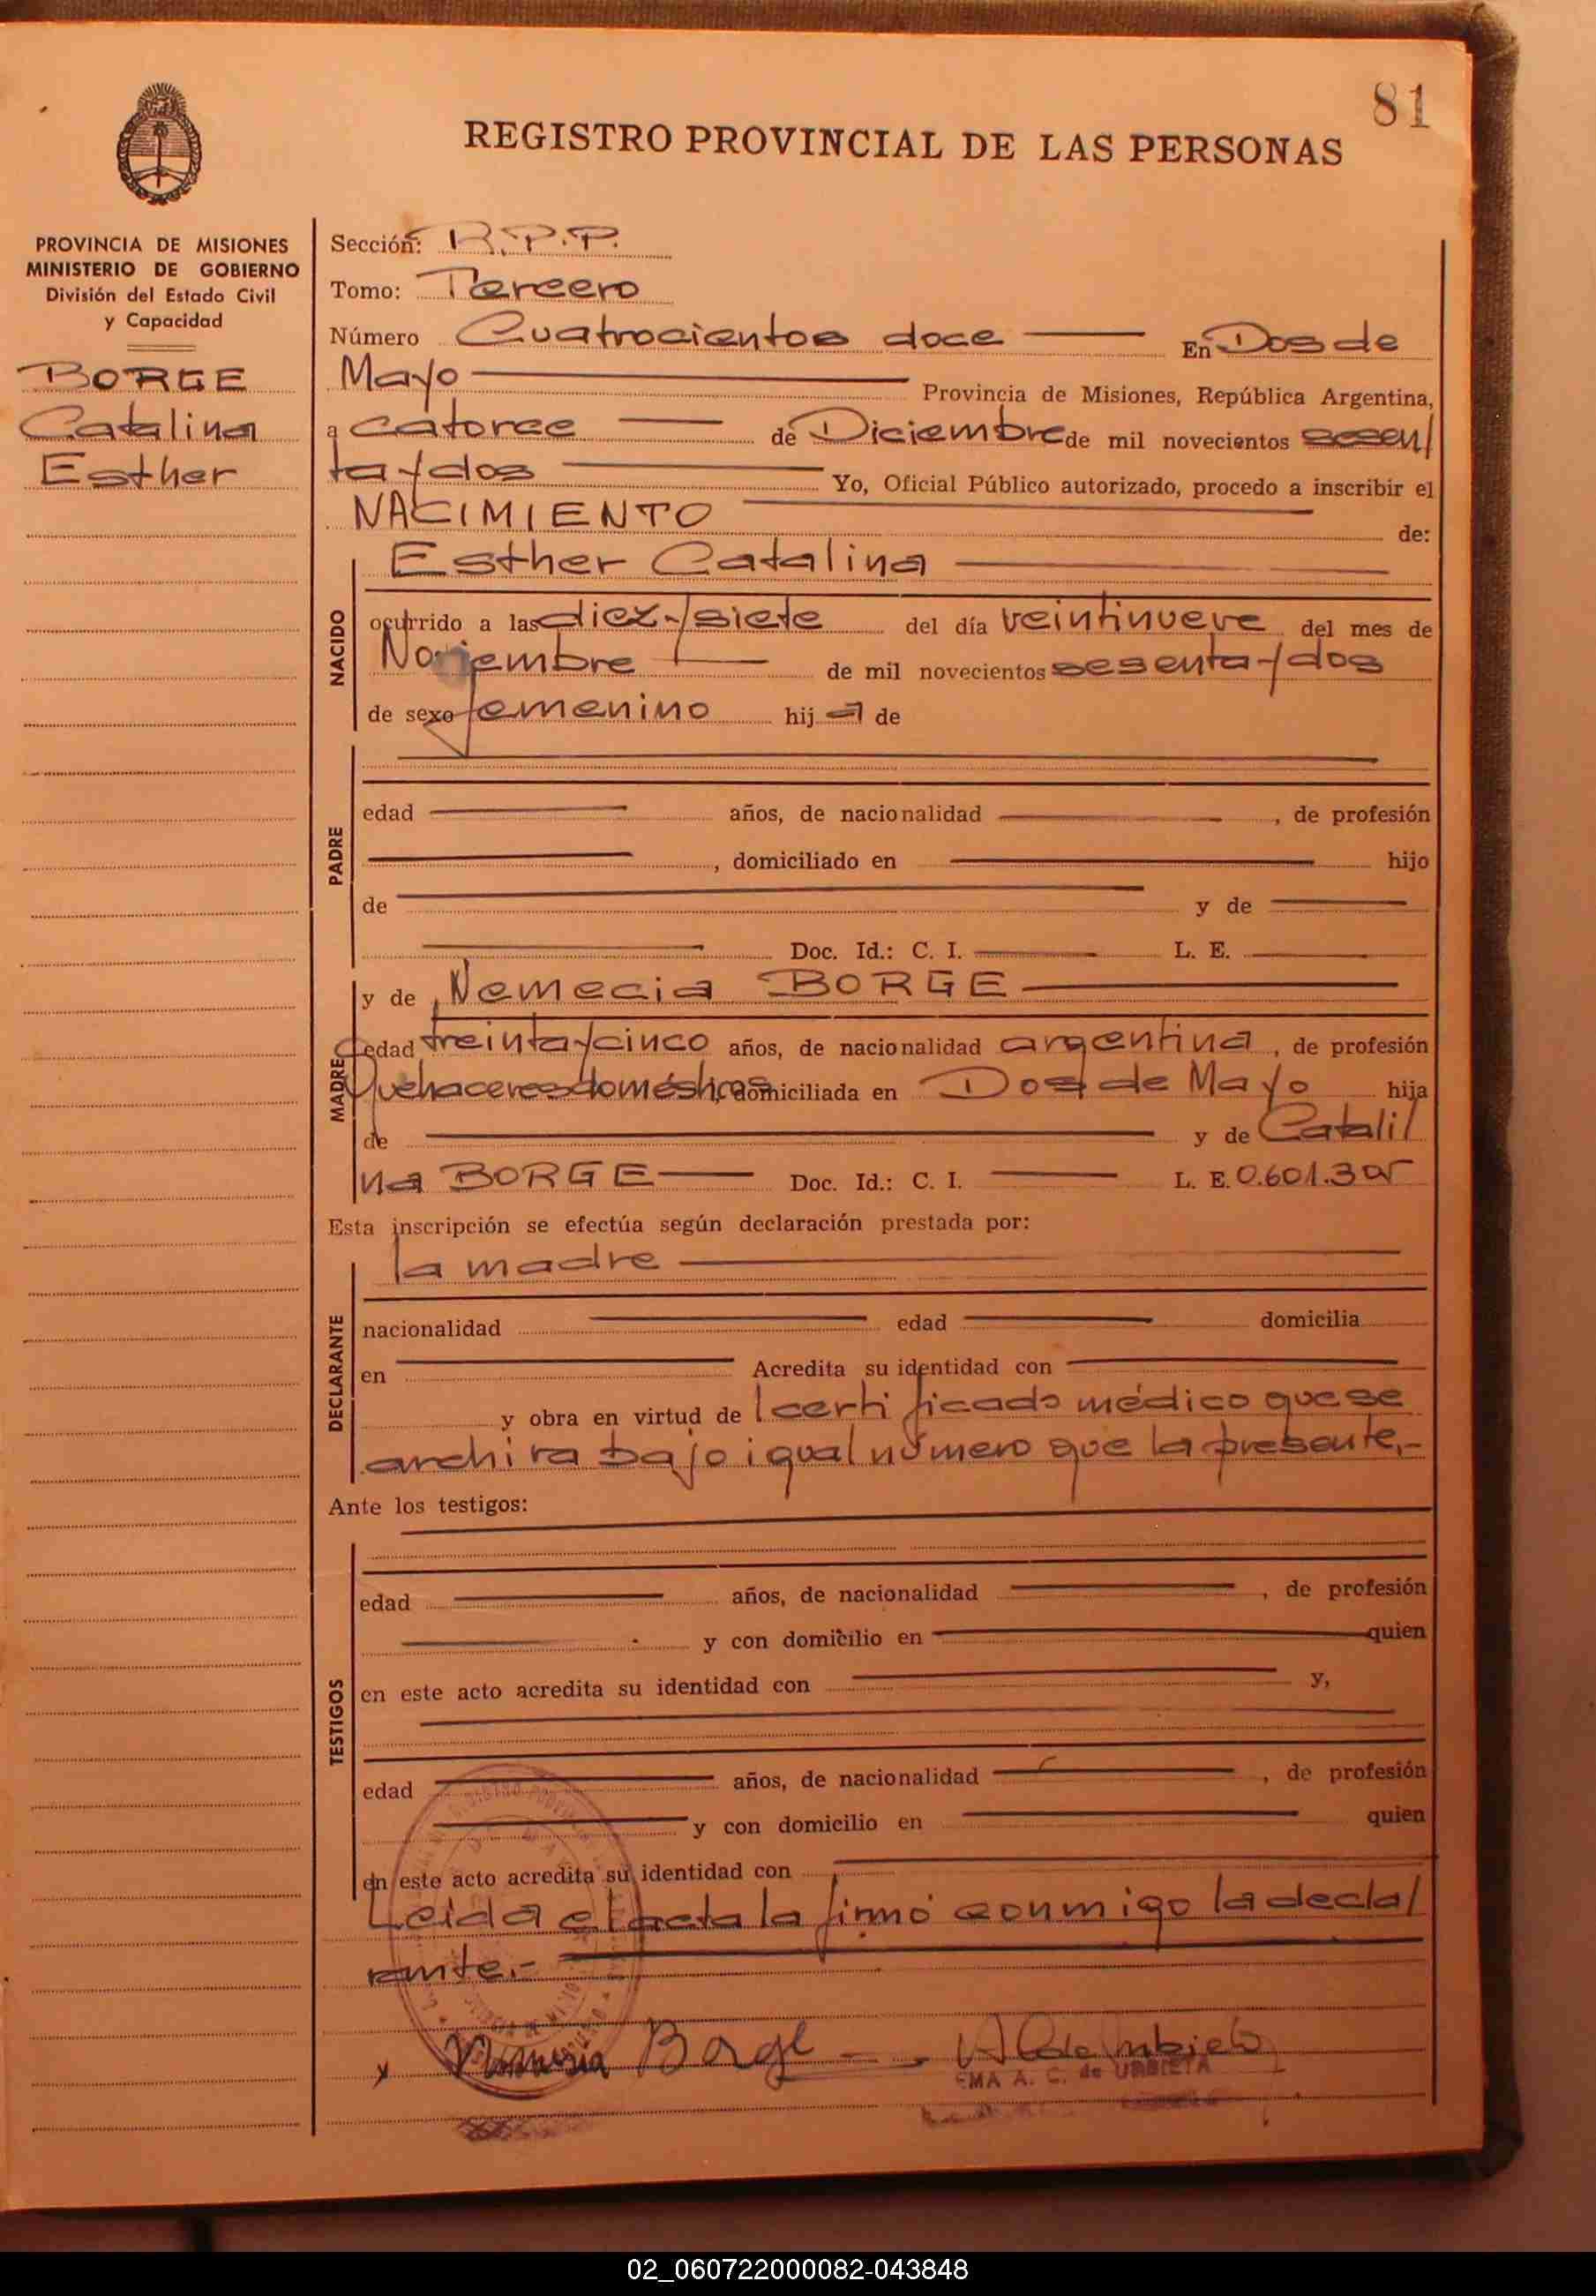 81
REGISTRO PROVINCIAL DE LAS PERSONAS
PROVINCIA DE MISIONES
MINISTERIO DE GOBIERNO
División del Estado Civil
y Capacidad
BORGE
Catalina
Esther
Sección: R.P.P.
Tomo: Tercero
Número Cuatrocientos doce En Dos de
Mayo Provincia de Misiones, República Argentina,
a catorce de Diciembre de mil novecientos sesen/
ta y dos Yo, Oficial Público autorizado, procedo a inscribir el
NACIMIENTO de:
NACIDO
Esther Catalina
ocurrido a las diez y siete del día veintinueve del mes de
Noviembre de mil novecientos sesenta y dos
de sexo femenino hija de
PADRE
edad años, de nacionalidad , de profesión
, domiciliado en hijo
de y de
Doc. Id.: C. I. L. E.
MADRE
y de Nemecia BORGE
edad treinta y cinco años, de nacionalidad argentina, de profesión
Quehaceres domésticos, domiciliada en Dos de Mayo hija
de y de Catali/
na BORGE Doc. Id.: C. I. L. E. 0.601.305
Esta inscripción se efectúa según declaración prestada por:
DECLARANTE
la madre
nacionalidad edad domicilia
en Acredita su identidad con
y obra en virtud de l certificado médico que se
archiva bajo igual número que la presente.-
Ante los testigos:
TESTIGOS
edad años, de nacionalidad , de profesión
y con domicilio en quien
en este acto acredita su identidad con y,
edad años, de nacionalidad , de profesión
y con domicilio en quien
en este acto acredita su identidad con
Leida el acta la firmó conmigo la decla/
rante.-
Borge
EMA A. C. de URBIETA
02_060722000082-043848